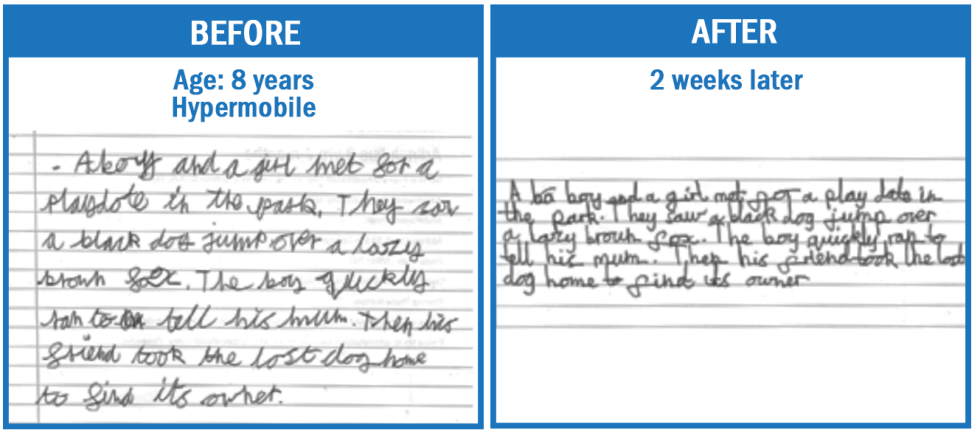 BEFORE
Age: 8 years
Hypermobile
. A boy and a girl met for a
playdate in the park. They saw
a black dog jump over a lazy
brown fox. The boy quickly
ran to tell his mum. Then his
friend took the lost dog home
to find its owner.
AFTER
2 weeks later
A bo boy and a girl met for a play date in
the park. They saw a black dog jump over
a lazy brown fox. The boy quickly ran to
tell his mum. Then his friend took the lost
dog home to find its owner